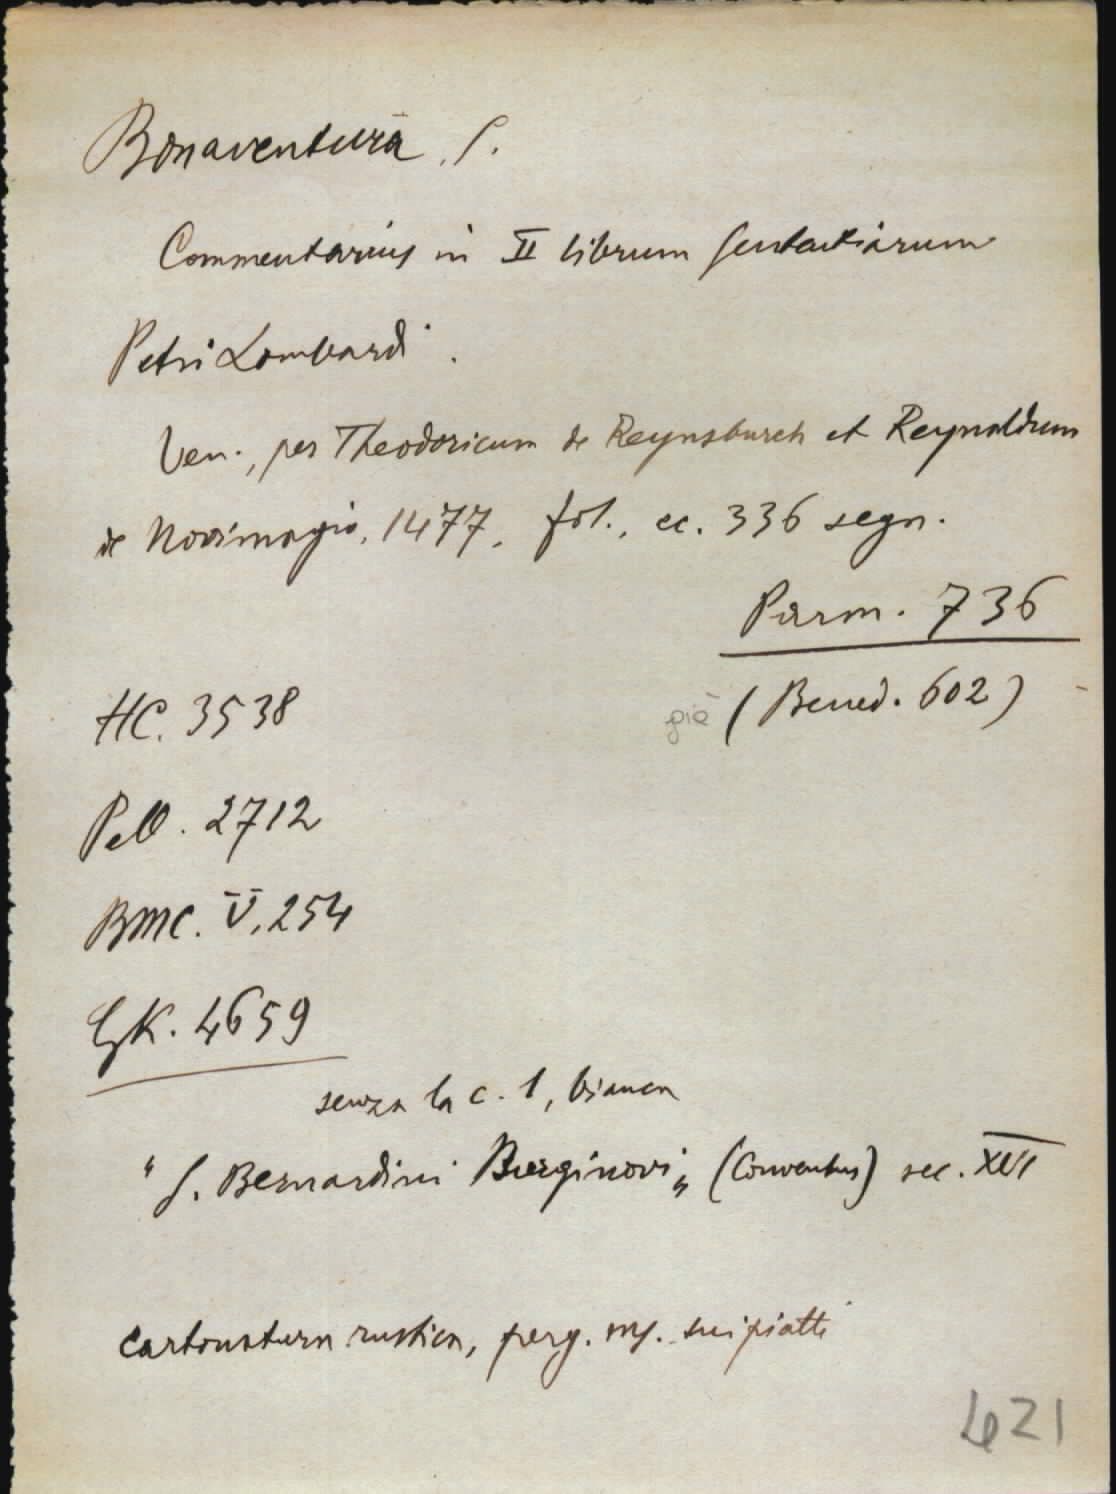 Bonaventura, S.
Commentarius in II librum Sententiarum
Petri Lombardi.
Ven., per Theodoricum de Reynsburch et Reynaldum
de Novimagio, 1477, fol., cc. 336 segn.
Parm. 736
già (Bened. 602)
HC. 3538
Pell. 2712
BMC. V, 254
GK. 4659
senza la c. 1, bianca
"S. Bernardini Burginovi" (Conventus) sec. XVI
Cartonatura rustica, perg. ms. sui piatti
421